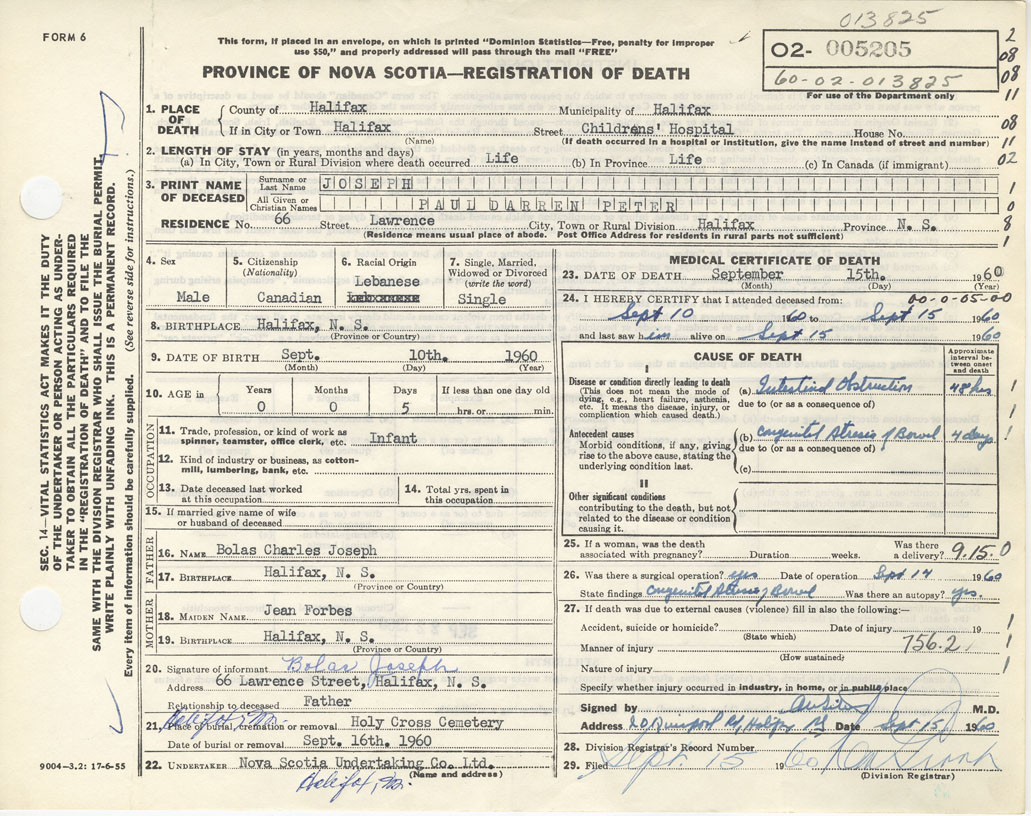 013825
FORM 6
This form, if placed in an envelope, on which is printed "Dominion Statistics—Free, penalty for improper
use $50," and properly addressed will pass through the mail "FREE"
02- 005205
60-02-013825
For use of the Department only
PROVINCE OF NOVA SCOTIA—REGISTRATION OF DEATH
2
08
08
11
08
11
02
1
0
8
1
1. PLACE OF DEATH
County of Halifax Municipality of Halifax
If in City or Town Halifax Street Childrens' Hospital House No.
(Name) (If death occurred in a hospital or institution, give the name instead of street and number)
2. LENGTH OF STAY (in years, months and days)
(a) In City, Town or Rural Division where death occurred Life (b) In Province Life (c) In Canada (if immigrant)
3. PRINT NAME OF DECEASED
Surname or Last Name JOSEPH
All Given or Christian Names PAUL DARREN PETER
RESIDENCE No. 66 Street Lawrence City, Town or Rural Division Halifax Province N. S.
(Residence means usual place of abode. Post Office Address for residents in rural parts not sufficient)
SEC. 14—VITAL STATISTICS ACT MAKES IT THE DUTY
OF THE UNDERTAKER OR PERSON ACTING AS UNDER-
TAKER TO OBTAIN ALL THE PARTICULARS REQUIRED
IN THE "REGISTRATION OF DEATH" AND TO FILE THE
SAME WITH THE DIVISION REGISTRAR WHO SHALL ISSUE THE BURIAL PERMIT.
WRITE PLAINLY WITH UNFADING INK. THIS IS A PERMANENT RECORD.
Every item of information should be carefully supplied. (See reverse side for instructions.)
4. Sex
Male
5. Citizenship
(Nationality)
Canadian
6. Racial Origin
Lebanese
7. Single, Married,
Widowed or Divorced
(write the word)
Single
8. BIRTHPLACE Halifax, N. S.
(Province or Country)
9. DATE OF BIRTH Sept. 10th. 1960
(Month) (Day) (Year)
10. AGE in
Years Months Days If less than one day old
0 0 5 hrs. or min.
OCCUPATION
11. Trade, profession, or kind of work as
spinner, teamster, office clerk, etc. Infant
12. Kind of industry or business, as cotton-
mill, lumbering, bank, etc.
13. Date deceased last worked
at this occupation
14. Total yrs. spent in
this occupation
15. If married give name of wife
or husband of deceased
FATHER
16. NAME Bolas Charles Joseph
17. BIRTHPLACE Halifax, N. S.
(Province or Country)
MOTHER
18. MAIDEN NAME Jean Forbes
19. BIRTHPLACE Halifax, N. S.
(Province or Country)
20. Signature of informant Bolas Joseph
Address 66 Lawrence Street, Halifax, N. S.
Relationship to deceased Father
21. Place of burial, cremation or removal Holy Cross Cemetery
Date of burial or removal Sept. 16th. 1960
22. UNDERTAKER Nova Scotia Undertaking Co. Ltd.
(Name and address)
9004—3.2: 17-6-55
MEDICAL CERTIFICATE OF DEATH
23. DATE OF DEATH September 15th. 1960
(Month) (Day) (Year)
24. I HEREBY CERTIFY that I attended deceased from: 00-0-05-00
Sept 10 1960 to Sept 15 1960
and last saw him alive on Sept 15 1960
CAUSE OF DEATH
Approximate
interval between
onset
and death
I
Disease or condition directly leading to death
(This does not mean the mode of
dying, e.g., heart failure, asthenia,
etc. It means the disease, injury, or
complication which caused death.)
(a) Intestinal Obstruction 48 hrs
due to (or as a consequence of)
Antecedent causes
Morbid conditions, if any, giving
rise to the above cause, stating the
underlying condition last.
(b) Congenital Atresia of Bowel 4 days
due to (or as a consequence of)
(c)
II
Other significant conditions
contributing to the death, but not
related to the disease or condition
causing it.
25. If a woman, was the death
associated with pregnancy? Duration weeks. Was there
a delivery? 9.15.0
26. Was there a surgical operation? yes Date of operation Sept 14 1960
State findings Congenital Atresia Bowel Was there an autopsy? yes.
27. If death was due to external causes (violence) fill in also the following:—
Accident, suicide or homicide? Date of injury 19
(State which)
Manner of injury 756.2
(How sustained)
Nature of injury
Specify whether injury occurred in industry, in home, or in public place
Signed by M.D.
Address Halifax Date Sept 15 1960
28. Division Registrar's Record Number
29. Filed Sept 15 1960
(Division Registrar)